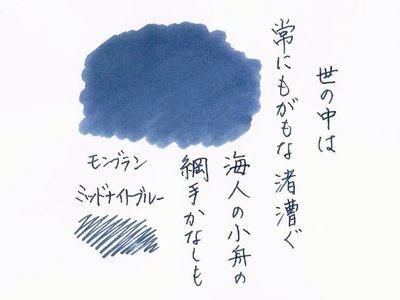 世の中は
常にもがもな渚漕ぐ
海人の小舟の
綱手かなしも
モンブラン
ミッドナイトブルー